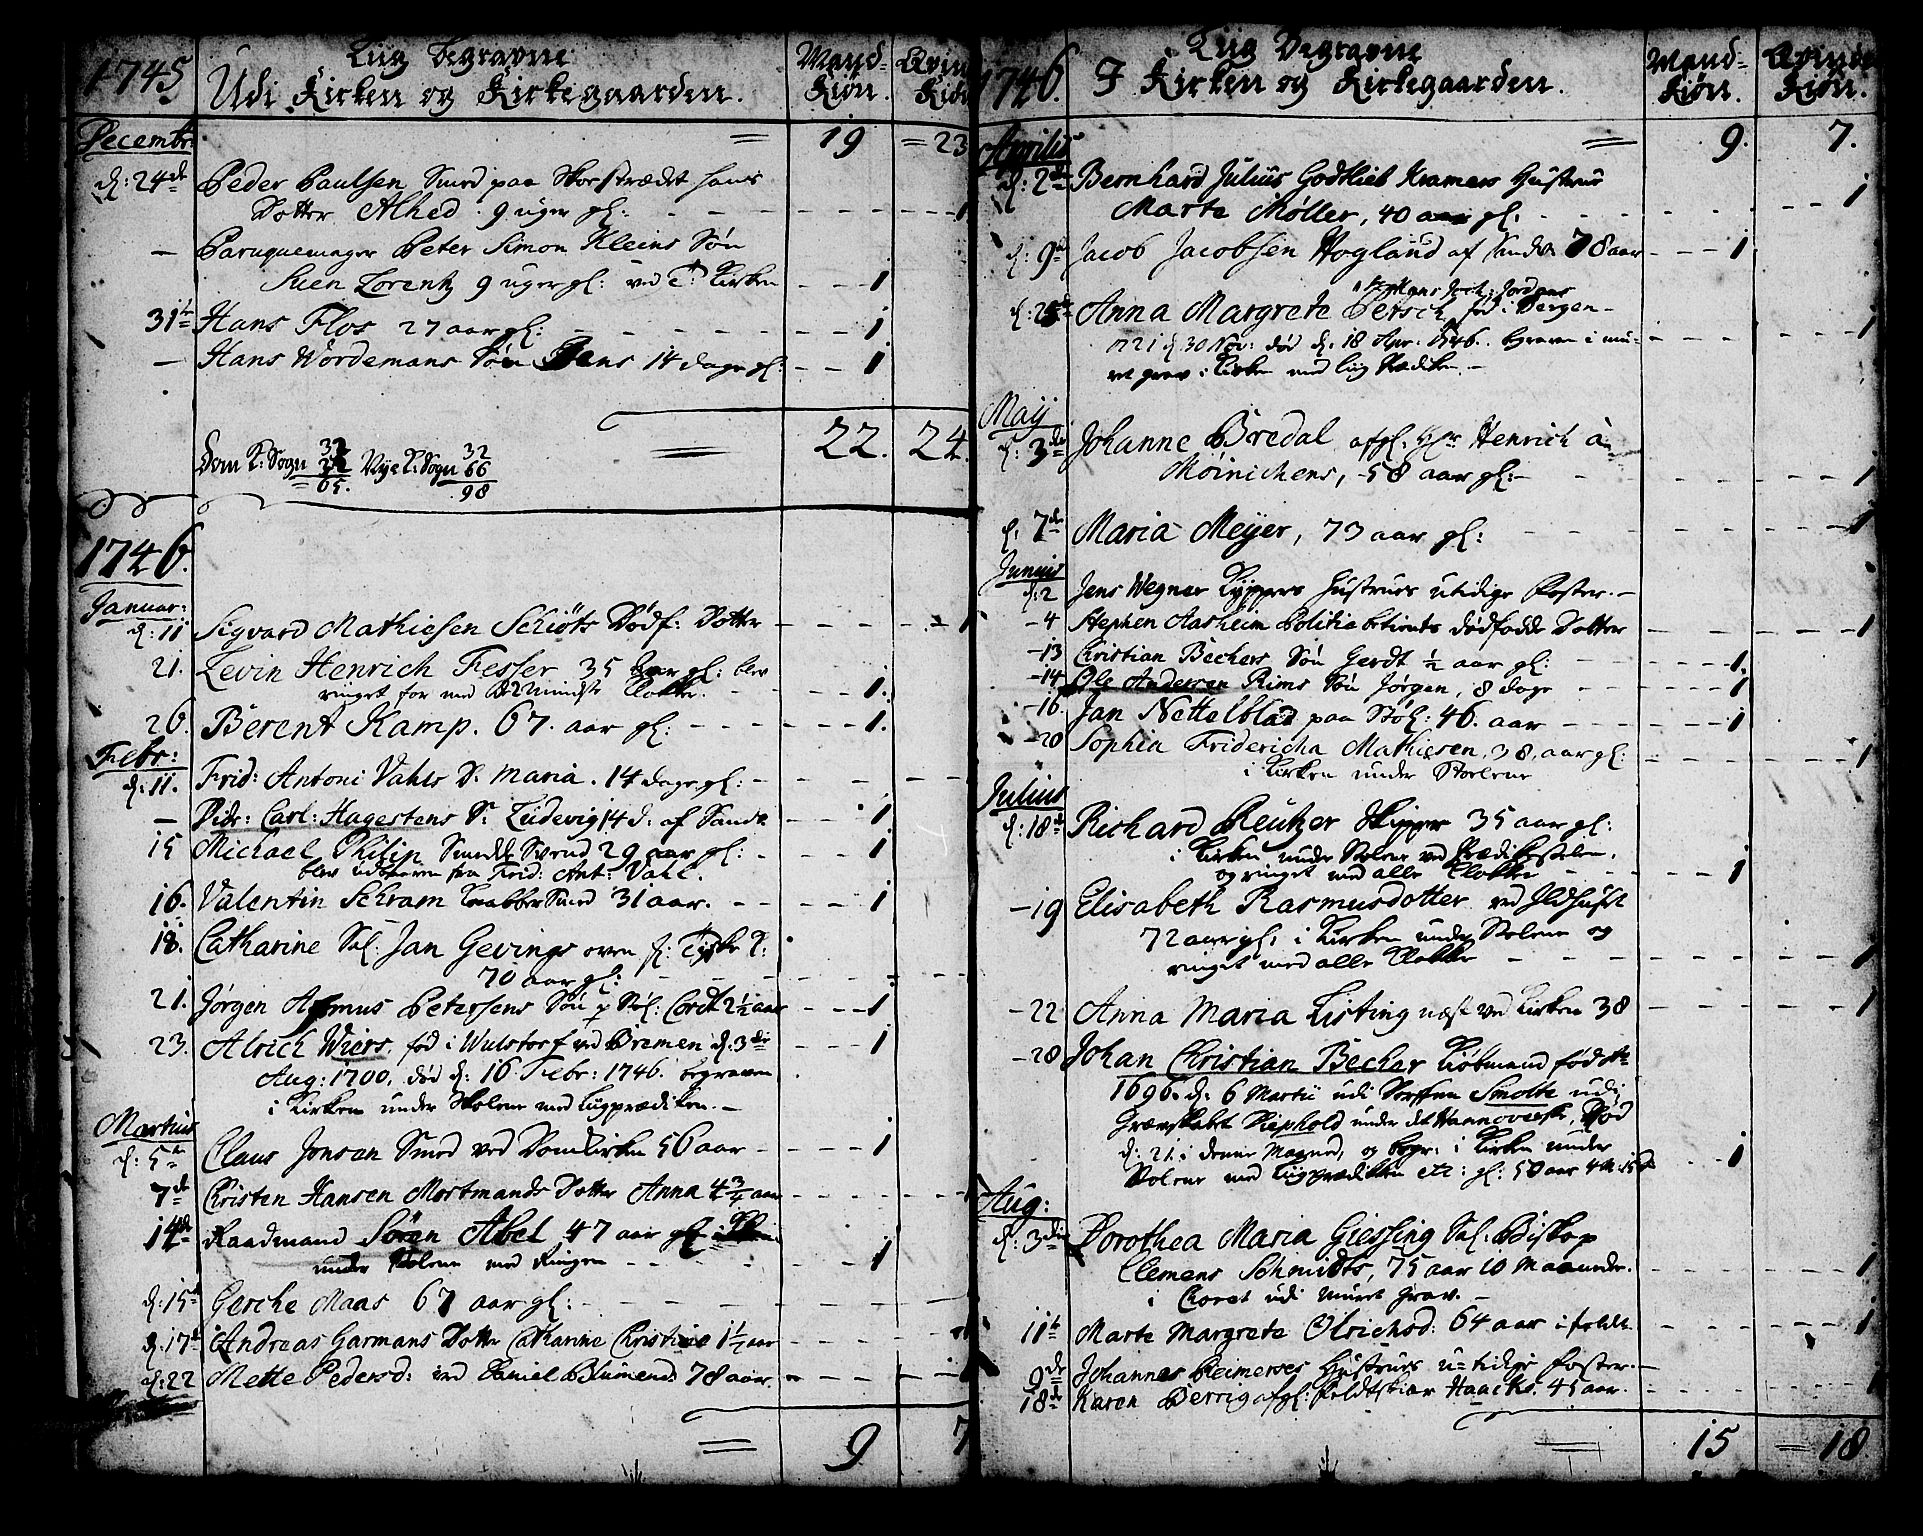 1745
Liig Begravne
Udi Kirken og Kirkegaarden.
Mand-
Kiøn.
Qvin
Kiøn
Decembr:
= 19 = 23
d: 24de Peder Paulsen Smed paa Skorstrædet hans
Dotter Alhed. 9 uger gl: 1
— Paruquemager Peter Simon Kleins Søn
Suen Lorentz 9 uger gl: ved T: Kirken 1
31te Hans Flos 27 aar gl: 1
— Hans Wördemans Søn Jens 14 dage gl: 1
= 22. 24.
Dom K: Sogn Nÿe K: Sogn 32
66
65. 98
1746.
Januar:
d: 11 Sigvard Mathiesen Schiøts Dødf: Dotter 1
21. Levin Henrich Fesser 35 aar gl: blev
ringet for med de 2 mindste Klokker. 1.
26. Berent Kamp. 67. aar gl: 1.
Febr:
d: 11. Frid: Antoni Vahls D. Maria. 14 dage gl:
— Didr: Carl: Hagestens S: Ludevig 14 d: af Sandt 1
15 Michael Philip Smedde Svend 29 aar gl: 1
blev udbaaren fra Frid: Ant: Vahl.
16. Valentin Schram Knabber Smed 31 aar. 1
18. Catharine Sal: Jan Gevings oven f: Tyske K:
70 aar gl:
21. Jørgen Asmus Petersens Søn p Støl: Cordt 2½ aar 1
23. Alrich Wiers, fød i Wulstorf ved Bremen d: 3de 1
Aug: 1700, død d: 16 Febr: 1746. begraven
i Kirken under Stolene med Liigprædiken. —
Martius
d: 5te Claus Jonsan Smed ved Domkirken 56 aar 1
7de Christen Hansen Mostmands Dotter Anna 4¾ aar
14de Raadmand Søren Abel 47 aar gl: i Kirken
under Stolene med Ringen 1
d: 15de Gerche Maas 67 aar gl:
d: 17de Andreas Garmans Dotter Catharine Christine 1½ aar
d: 22 Mette Pedersd: ved Daniel Blumends 78 aar.
= 9 7
1746.
Liig Begravne
I Kirken og Kirkegaarden.
Mand-
Kiøn.
Qvinde
Kiøn.
Aprilis
= 9. 7.
d: 2den Bernhard Julius Godtlieb Kramers Hustrue
Marte Møller, 40 aar gl. 1
d: 9de Jacob Jacobsen Hogland af Sandt 78 aar 1
Jordans
d: 25de Anna Margrete Petsch, fød i Bergen
1721 d: 30 Nov: død d: 18 Apr: 1746. Graven i mu- 1
ret grav i Kirken med Liig Prædiken. —
Maij
d: 3die Johanne Bredal afgl: Hr Henrich à
Möinichens, 58 aar gl: 1
d: 7de Maria Meÿer, 73 aar gl: 1
Junius
d: 2 Jens Wegner Kyppers Hustrues utidige Foster. —
— 4 Stephen Aasheim Politiebetients dødfødde Dotter 1
— 13 Christian Bechers Søn Gerdt ½ aar gl: 1.
— 14 Ole Andersen Rims Søn Jørgen, 8 dage 1
— 16. Jan Nettelblad paa Støl: 46. aar 1
— 20 Sophia Fridericha Mathiesen, 38, aar gl: 1
i Kirken under Stoelene
Julius
d: 18de Richard Reutzer Skipper 35 aar gl:
i Kirken under Stolene ved Prædikestolen,
og ringet med alle Klokker 1
— 19 Elisabeth Rasmusdotter ved Ildhuset
72 aar gl: i Kirken under Stolene og
ringet med alle Klokker 1
— 22 Anna Maria Listing næst ved Kirken 38 1
— 28 Johan Christian Becher Kiøbmand fødste
1696. d: 6 Martii udi Dorffen Smolte udi
Grævskabet Diephold under det Hannoverske, Død
d: 21. i denne Maaned, og begr: i Kirken under
Stolene med Liigprædiken etc: gl: 50 aar 4 M: 15 d. 1
Aug:
d: 3die Dorothea Maria Giessing Sal: Biskop
Clemens Schmidts, 75 aar 10 Maaneder. 1
i Choret udi muret grav. —
11te Marte Margrete Olrichsd: 64 aar i foldt. 1
9de Johannes Reimerses Hustrues u=tidige foster. —
18de Karen Berrig afgl: Feldtskiær Haacks. 45 aar. 1
= 15 = 18